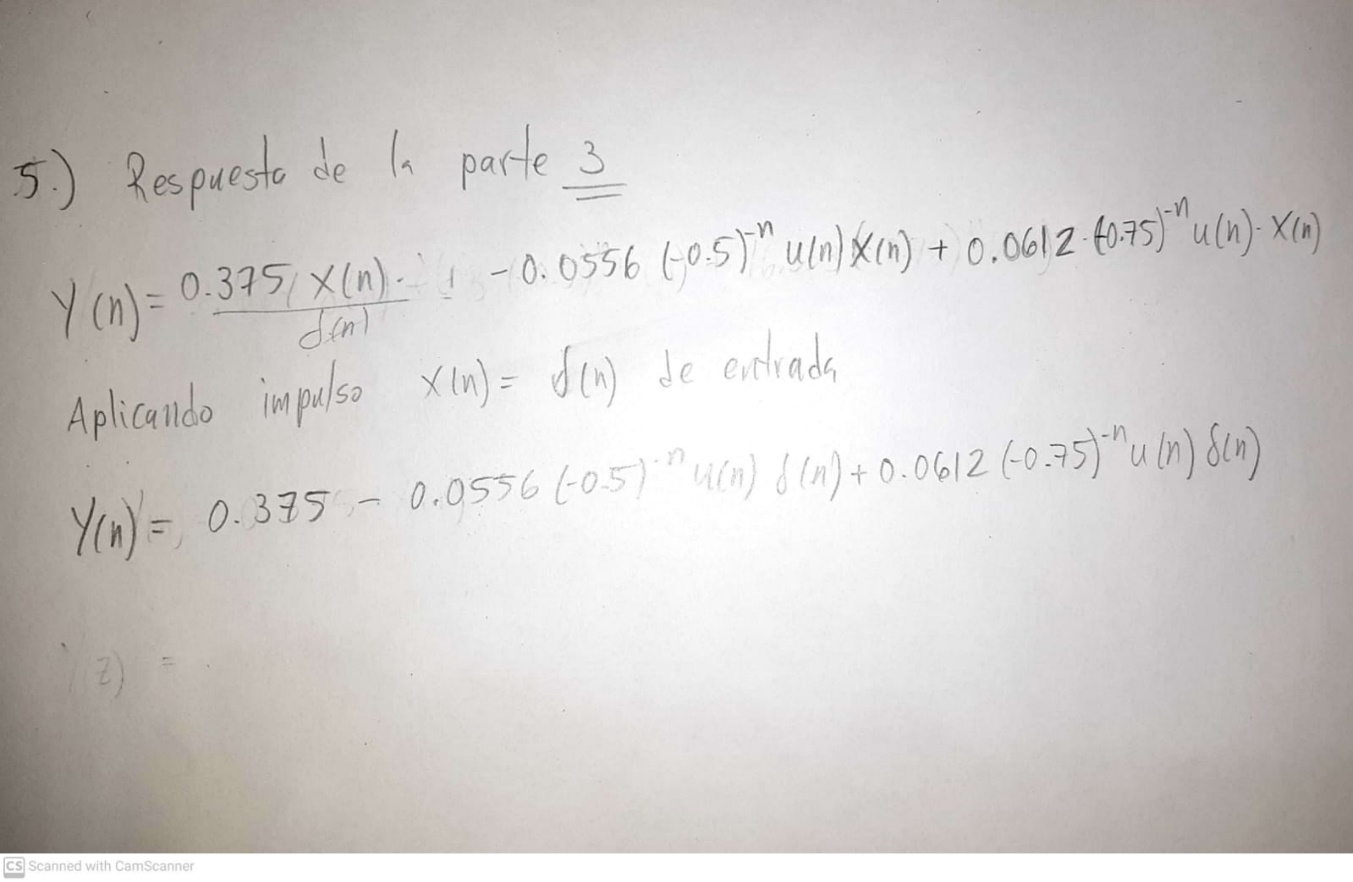 5.) Respuesta de la parte 3
Y(n) = 0.375 X(n) / δ(n) - 0.0556 (-0.5)^-n u(n) X(n) + 0.0612 · (-0.75)^-n u(n) · X(n)
Aplicando impulso X(n) = δ(n) de entrada
Y(n) = 0.375 - 0.0556 (-0.5)^-n u(n) δ(n) + 0.0612 (-0.75)^-n u(n) δ(n)
z) =
CS Scanned with CamScanner